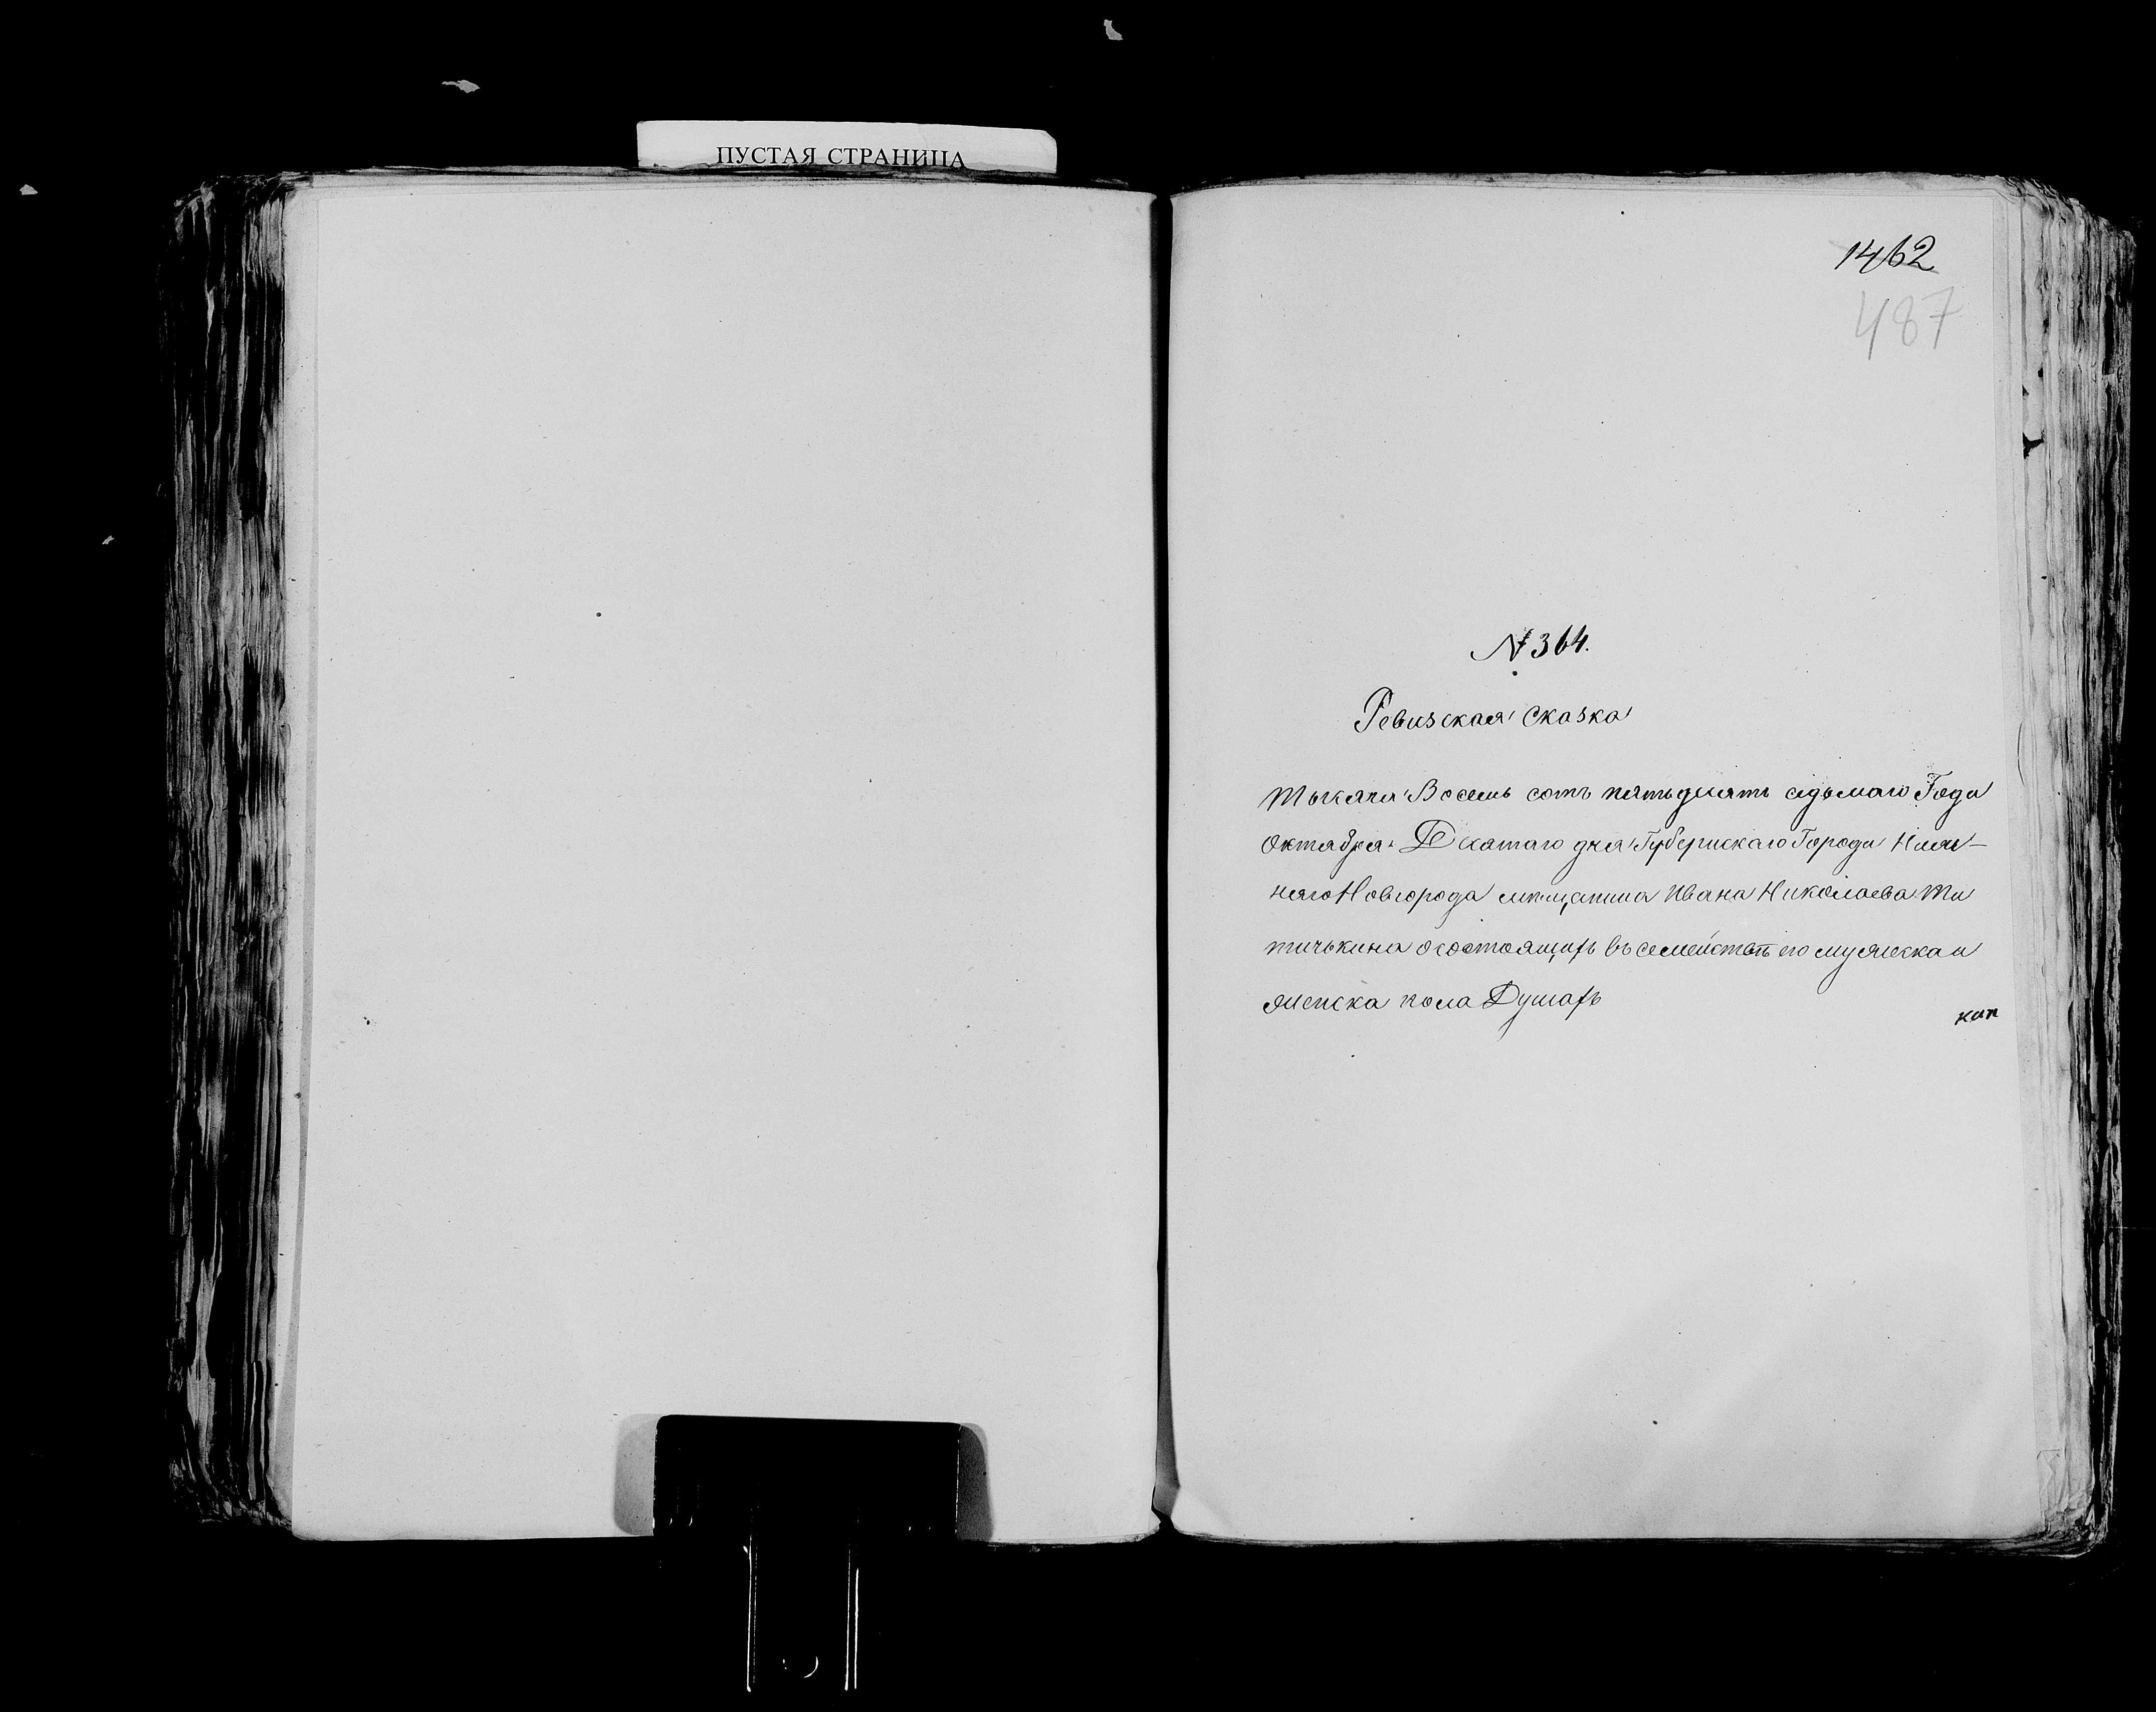 ПУСТАЯ СТРАНИЦА
1462
487
№ 364.
Ревизская сказка
Тысяча Восемь сотъ пятьдесятъ седьмаго Года
Октября Десятаго дня Губернскаго Города Ниж-
няго Новгорода мѣщанина Ивана Николаева Ти
тичькина осостоящихъ въ семействѣ его мужеска и
женска пола Душахъ